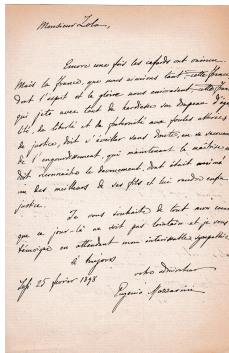 Monsieur Zola,
Encore une fois les cafards ont vaincu.
Mais la France, que nous aimions tant, cette France
dont l'esprit et la gloire nous enivraient, cette France
qui jeta avec tant de hardiesse son drapeau d'éga-
lité, de liberté et de fraternité aux foules altérées
de justice, doit s'éveiller sans doute, en se secouant
de l'engourdissement, qui maintenant la maîtrise et
doit reconnaître le dévouement, dont était animé
un des meilleurs de ses fils et lui rendre enfin
justice.
Je vous souhaite de tout mon coeur
que ce jour-là ne soit pas lointain et je vous
témoigne en attendant mon inaltérable sympathie
à toujours
votre admirateur
25 février 1898
Eugenio